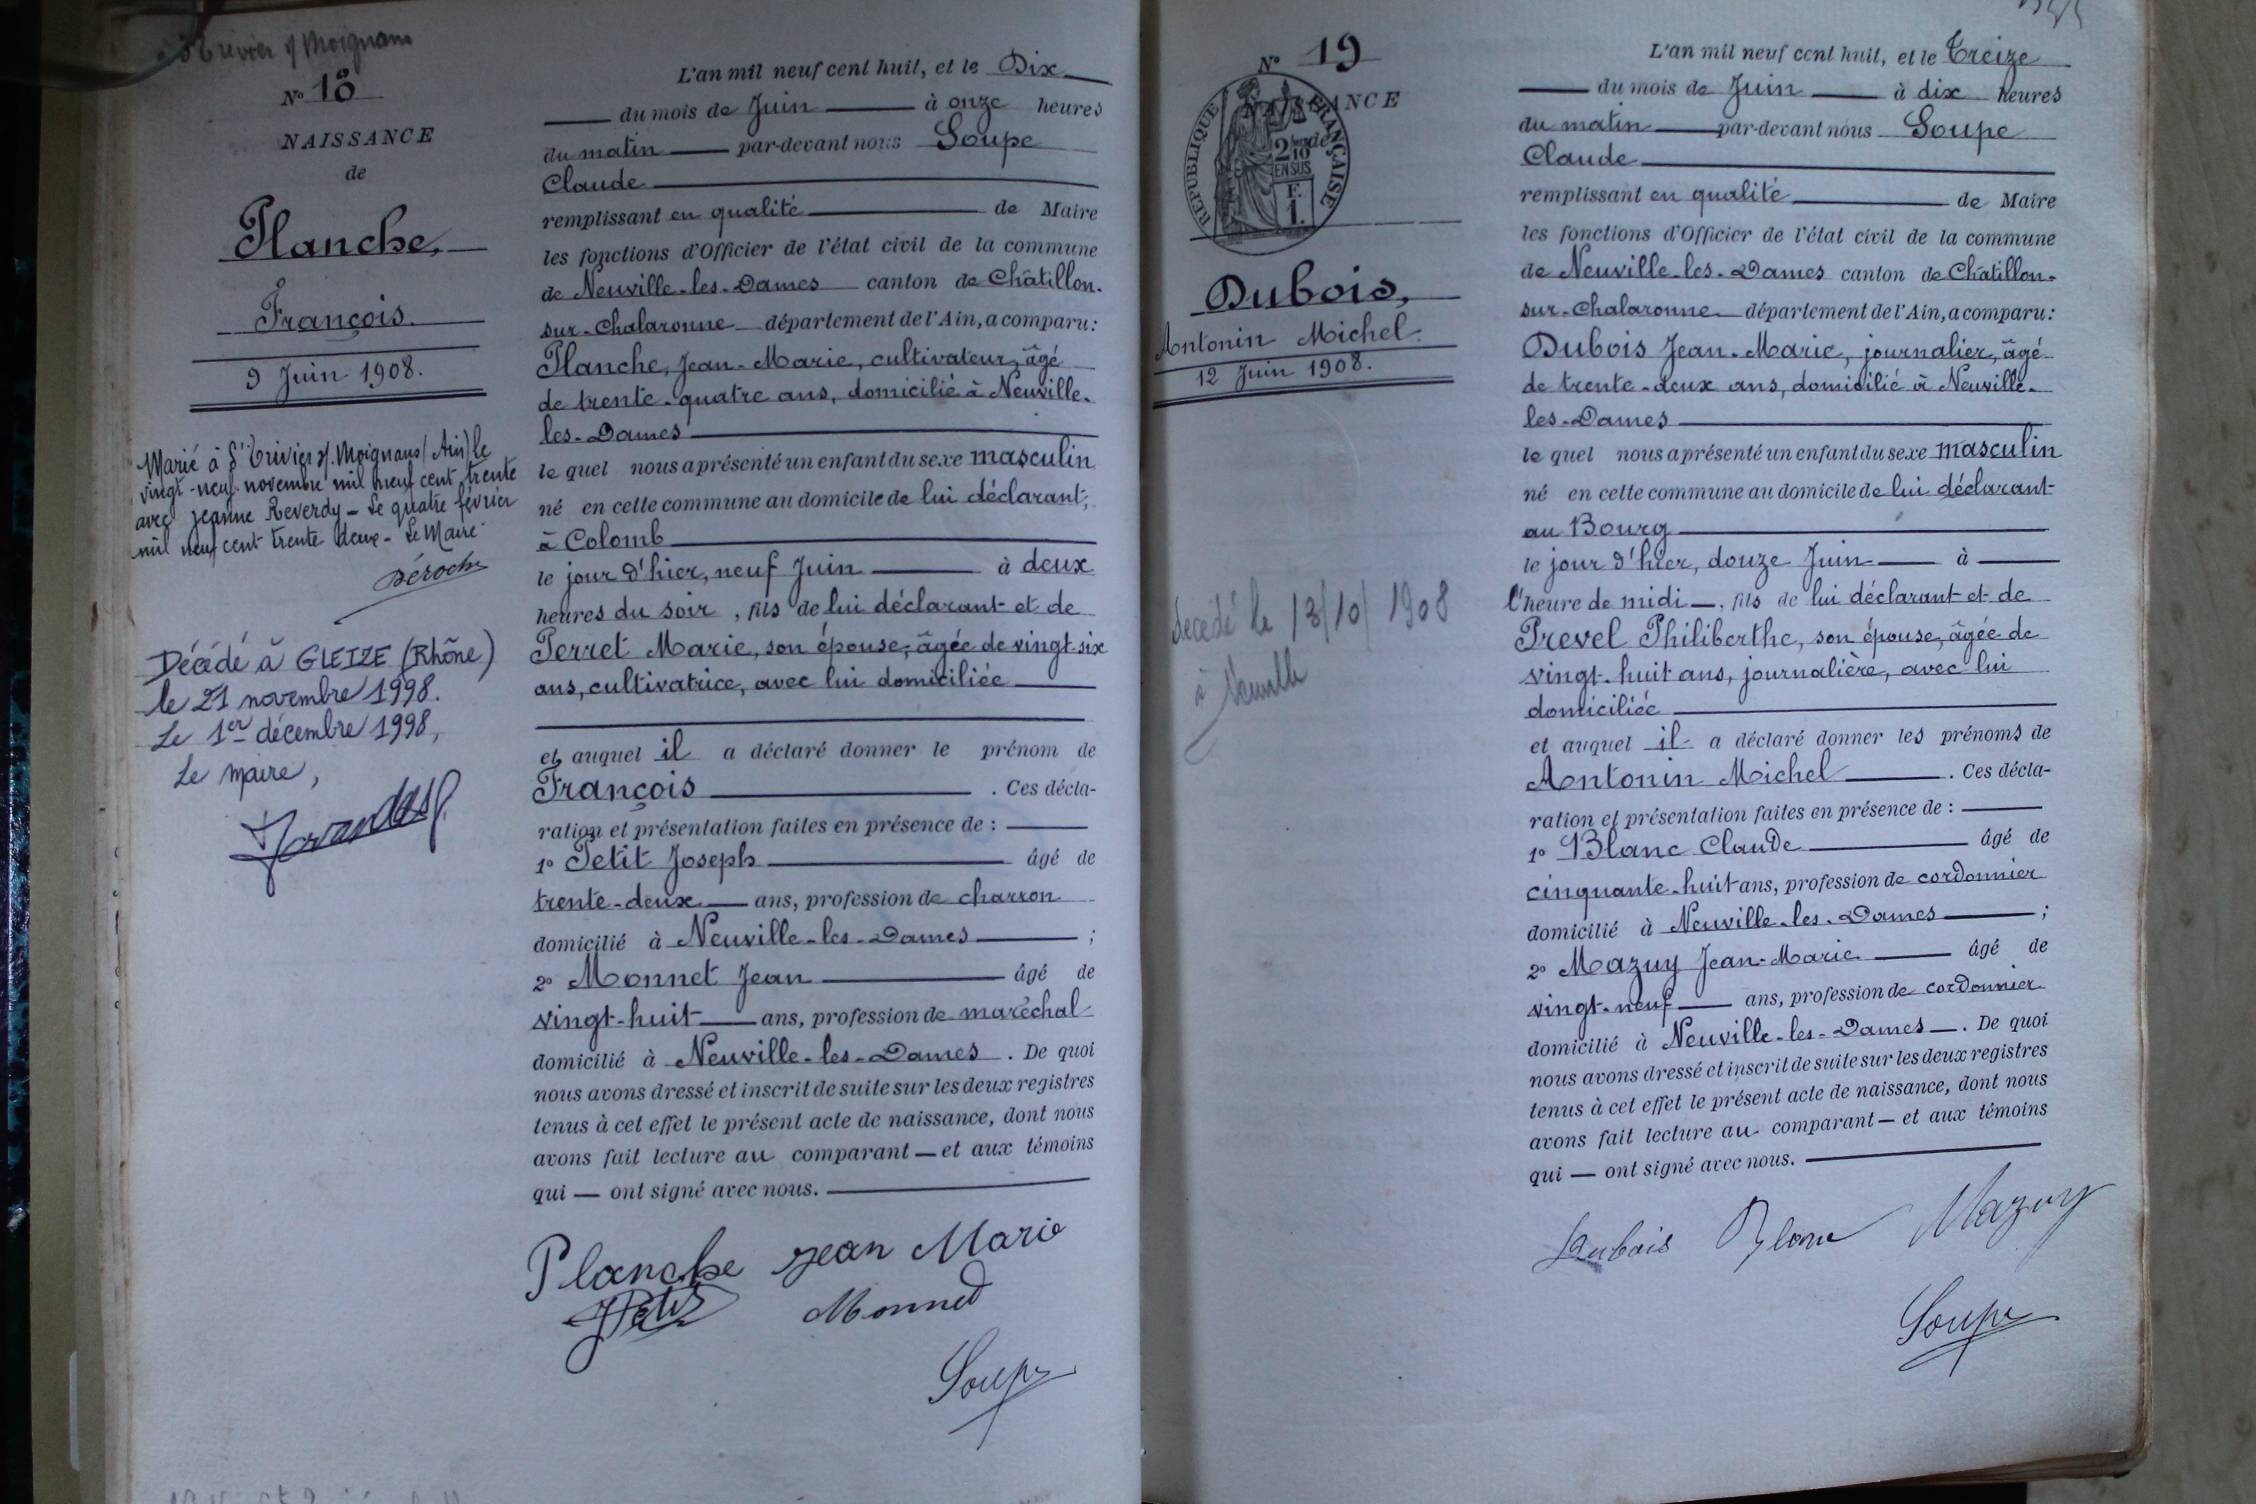 Trivier s/ Moignans
N° 18
NAISSANCE
de
Planche,
François.
9 Juin 1908.
Marié à St Trivier s/. Moignans (Ain) le
vingt-neuf novembre mil neuf cent trente
avec Jeanne Reverdy - Le quatre février
mil neuf cent trente deux - Le Maire
Déroche
Décédé à GLEIZE (Rhône)
le 21 novembre 1998.
Le 1er décembre 1998,
Le maire,
L'an mil neuf cent huit, et le Dix
du mois de Juin à onze heures
du matin par-devant nous Soupe
Claude
remplissant en qualité de Maire
les fonctions d'Officier de l'état civil de la commune
de Neuville-les-Dames canton de Châtillon-
sur-Chalaronne département de l'Ain, a comparu :
Planche, Jean-Marie, cultivateur, âgé
de trente-quatre ans, domicilié à Neuville-
les-Dames
le quel nous a présenté un enfant du sexe masculin
né en cette commune au domicile de lui déclarant,
à Colomb
le jour d'hier, neuf Juin à deux
heures du soir, fils de lui déclarant et de
Perret Marie, son épouse, âgée de vingt-six
ans, cultivatrice, avec lui domiciliée
et auquel il a déclaré donner le prénom de
François . Ces décla-
ration et présentation faites en présence de :
1° Petit Joseph âgé de
trente-deux ans, profession de charron
domicilié à Neuville-les-Dames ;
2° Monnet Jean âgé de
vingt-huit ans, profession de maréchal
domicilié à Neuville-les-Dames . De quoi
nous avons dressé et inscrit de suite sur les deux registres
tenus à cet effet le présent acte de naissance, dont nous
avons fait lecture au comparant — et aux témoins
qui — ont signé avec nous.
Planche Jean Marie
JPetit Monnet
Soupe
N° 19
NAISSANCE
de
RÉPUBLIQUE FRANÇAISE
2/10
EN SUS
F.
1.
Dubois,
Antonin Michel.
12 Juin 1908.
Décédé le 13/10/1908
à Neuville
L'an mil neuf cent huit, et le Treize
du mois de Juin à dix heures
du matin par-devant nous Soupe
Claude
remplissant en qualité de Maire
les fonctions d'Officier de l'état civil de la commune
de Neuville-les-Dames canton de Châtillon-
sur-Chalaronne département de l'Ain, a comparu :
Dubois Jean-Marie, journalier, âgé
de trente-deux ans, domicilié à Neuville-
les-Dames
le quel nous a présenté un enfant du sexe masculin
né en cette commune au domicile de lui déclarant
au Bourg
le jour d'hier, douze Juin à
l'heure de midi —, fils de lui déclarant et de
Prevel Philiberthe, son épouse, âgée de
vingt-huit ans, journalière, avec lui
domiciliée
et auquel il a déclaré donner les prénoms de
Antonin Michel . Ces décla-
ration et présentation faites en présence de :
1° Blanc Claude âgé de
cinquante-huit ans, profession de cordonnier
domicilié à Neuville-les-Dames ;
2° Mazuy Jean-Marie âgé de
vingt-neuf ans, profession de cordonnier
domicilié à Neuville-les-Dames —. De quoi
nous avons dressé et inscrit de suite sur les deux registres
tenus à cet effet le présent acte de naissance, dont nous
avons fait lecture au comparant — et aux témoins
qui — ont signé avec nous.
Dubois Blanc Mazuy
Soupe